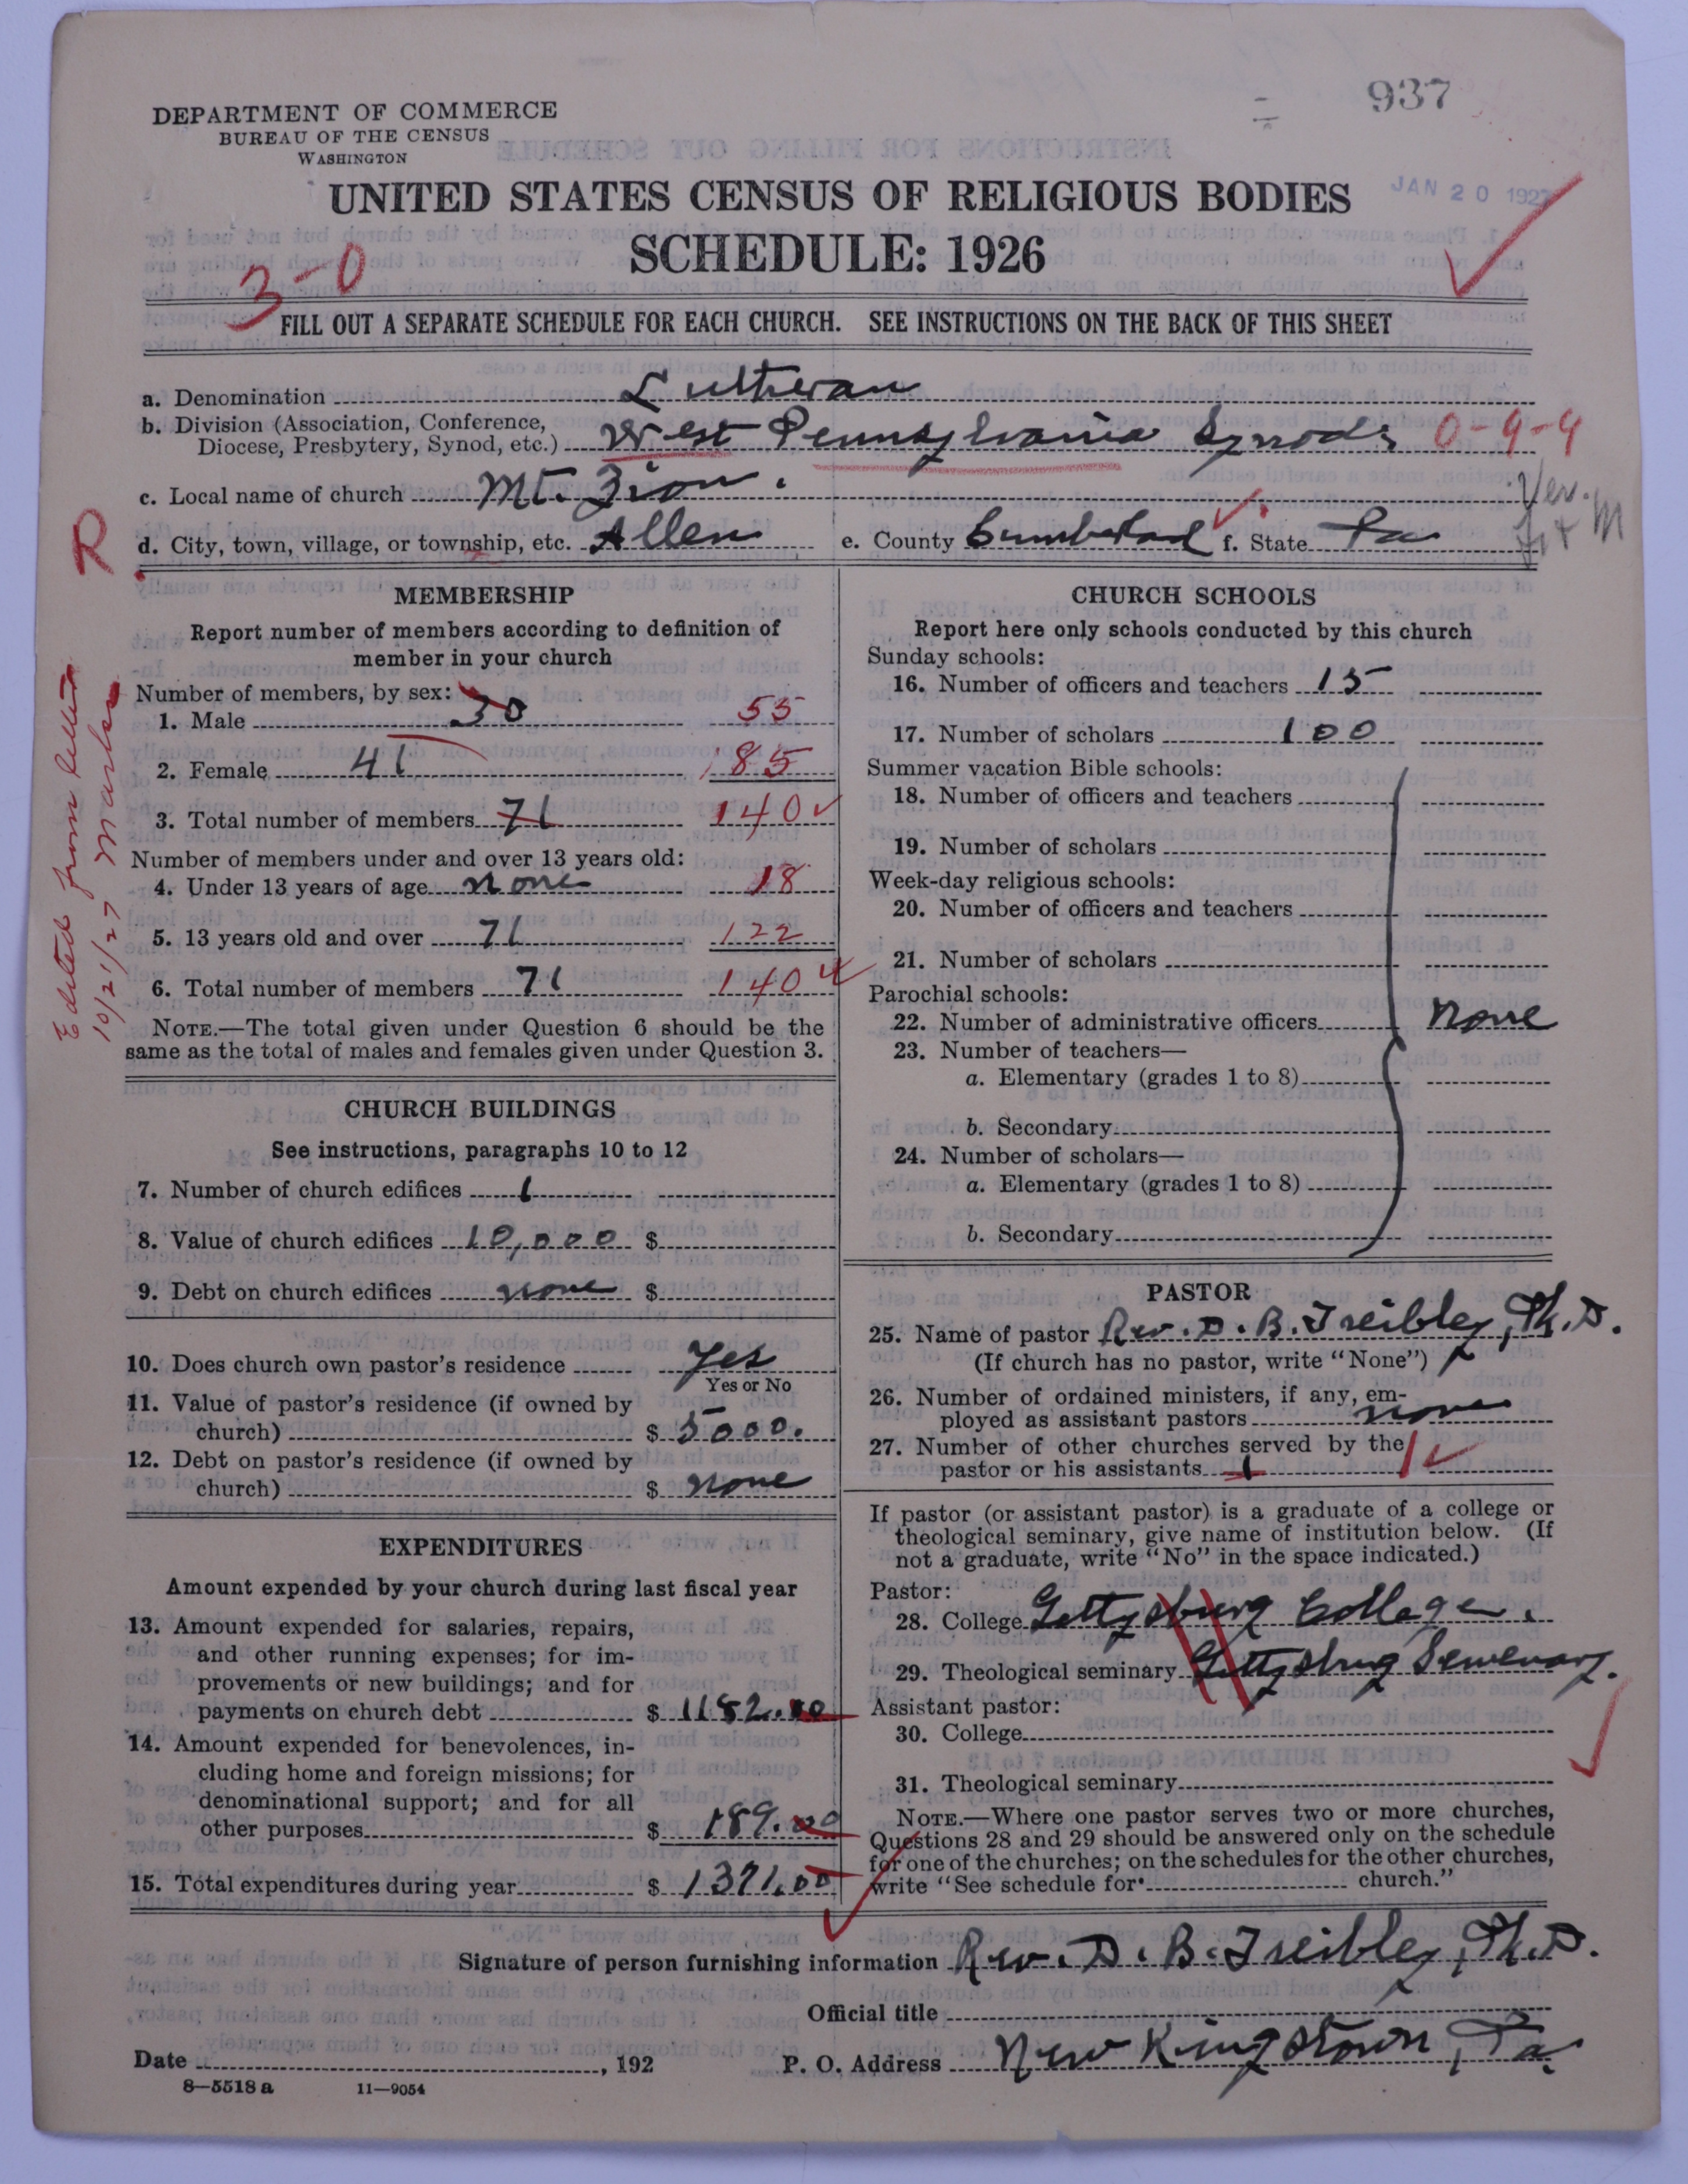 937
DEPARTMENT OF COMMERCE
BUREAU OF THE CENSUS
WASHINGTON
JAN 20 1927
UNITED STATES CENSUS OF RELIGIOUS BODIES
SCHEDULE: 1926
3-0
FILL OUT A SEPARATE SCHEDULE FOR EACH CHURCH. SEE INSTRUCTIONS ON THE BACK OF THIS SHEET
a. Denomination Lutheran
b. Division (Association, Conference,
Diocese, Presbytery, Synod, etc.) West Pennsylvania Synod 0-9-9
c. Local name of church Mt. Zion.
Ver.
d. City, town, village, or township, etc. Allen e. County Cumberland f. State Pa
R
Edited from letter
10/21/27
MEMBERSHIP
Report number of members according to definition of
member in your church
Number of members, by sex:
1. Male 30 55
2. Female 41 85
3. Total number of members 71 140
Number of members under and over 13 years old:
4. Under 13 years of age none 18
5. 13 years old and over 71 122
6. Total number of members 71 140
NOTE.—The total given under Question 6 should be the
same as the total of males and females given under Question 3.
CHURCH BUILDINGS
See instructions, paragraphs 10 to 12
7. Number of church edifices 1
8. Value of church edifices 10,000 $
9. Debt on church edifices none $
10. Does church own pastor's residence Yes
Yes or No
11. Value of pastor's residence (if owned by
church) $ 5000.
12. Debt on pastor's residence (if owned by
church) $ none
EXPENDITURES
Amount expended by your church during last fiscal year
13. Amount expended for salaries, repairs,
and other running expenses; for im-
provements or new buildings; and for
payments on church debt $ 1182.00
14. Amount expended for benevolences, in-
cluding home and foreign missions; for
denominational support; and for all
other purposes $ 189.00
15. Total expenditures during year $ 1371.00
CHURCH SCHOOLS
Report here only schools conducted by this church
Sunday schools:
16. Number of officers and teachers 15
17. Number of scholars 100
Summer vacation Bible schools:
18. Number of officers and teachers
19. Number of scholars
Week-day religious schools:
20. Number of officers and teachers
21. Number of scholars
Parochial schools:
22. Number of administrative officers none
23. Number of teachers—
a. Elementary (grades 1 to 8)
b. Secondary
24. Number of scholars—
a. Elementary (grades 1 to 8)
b. Secondary
PASTOR
25. Name of pastor Rev. D. B. Treibley, Ph.D.
(If church has no pastor, write "None")
26. Number of ordained ministers, if any, em-
ployed as assistant pastors none
27. Number of other churches served by the
pastor or his assistants 1 1
If pastor (or assistant pastor) is a graduate of a college or
theological seminary, give name of institution below. (If
not a graduate, write "No" in the space indicated.)
Pastor:
28. College Gettysburg College.
29. Theological seminary Gettysburg Semenary.
Assistant pastor:
30. College
31. Theological seminary
NOTE.—Where one pastor serves two or more churches,
Questions 28 and 29 should be answered only on the schedule
for one of the churches; on the schedules for the other churches,
write "See schedule for church."
Signature of person furnishing information Rev. D. B. Treibley, Ph.D.
Official title
Date , 192 P. O. Address New Kingstown, Pa.
8—5518 a 11—9054